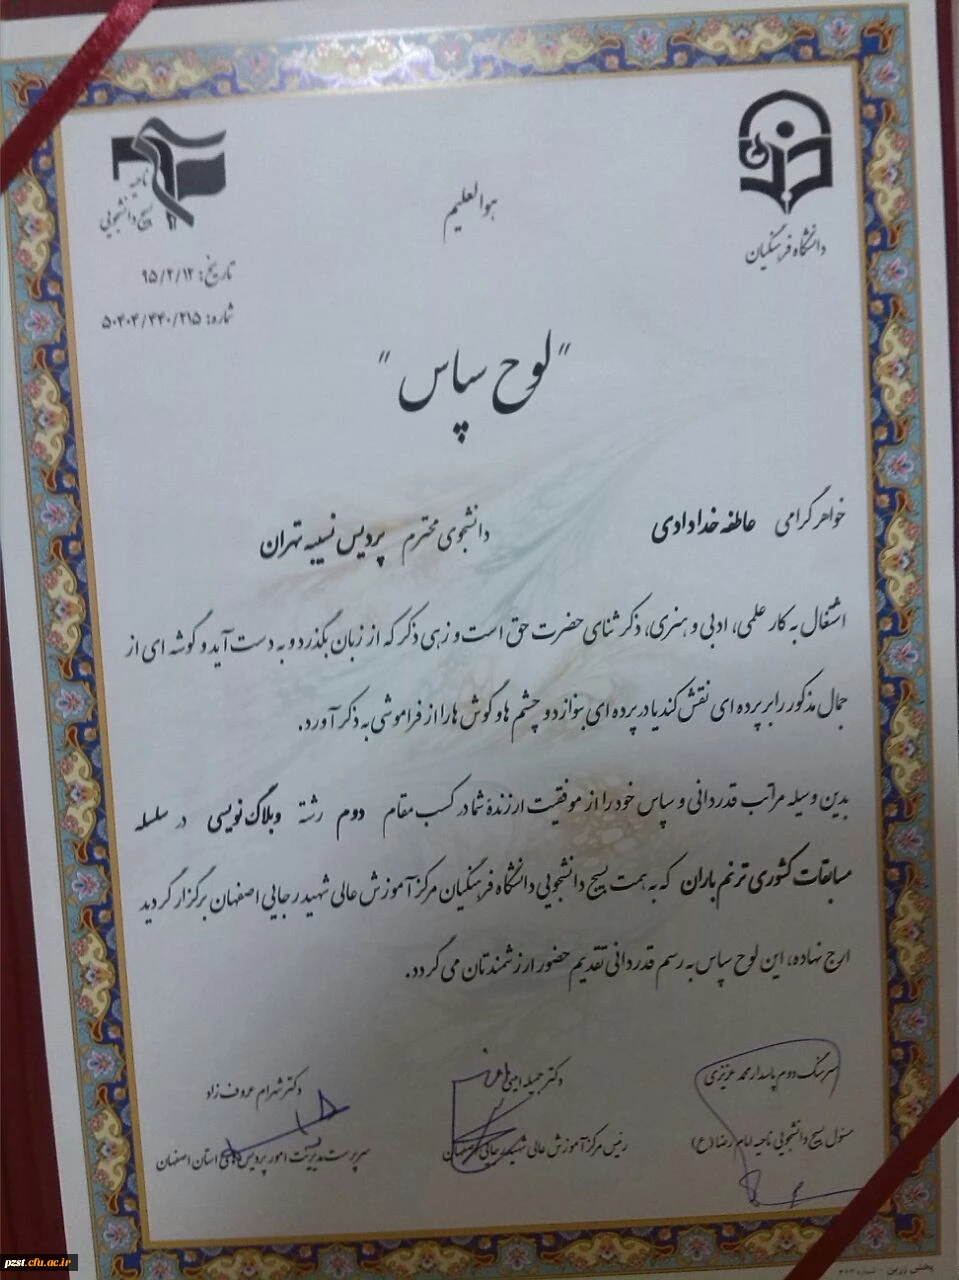 هوالعلیم
دانشگاه فرهنگیان
ناحیه
بسیج دانشجویی
تاریخ: ۹۵/۲/۱۲
شماره: ۵۰۴۰۴/۴۴۰/۲۱۵
"لوح سپاس"
خواهر گرامی عاطفه خدادادی دانشجوی محترم پردیس نسیبه تهران
اشتغال به کار علمی، ادبی و هنری، ذکر ثنای حضرت حق است و زهی ذکر که از زبان بگذرد و به دست آید و گوشه ای از
جمال مذکور را بر پرده ای نقش کند یا در پرده ای بنوازد و چشم ها و گوش ها را از فراموشی به ذکر آورد.
بدین وسیله مراتب قدردانی و سپاس خود را از موفقیت ارزندهٔ شما در کسب مقام دوم رشته وبلاگ نویسی در سلسله
مسابقات کشوری ترنم باران که به همت بسیج دانشجویی دانشگاه فرهنگیان مرکز آموزش عالی شهید رجایی اصفهان برگزار گردید
ارج نهاده، این لوح سپاس به رسم قدردانی تقدیم حضور ارزشمندتان می گردد.
سرهنگ دوم پاسدار محمد عزیزی
مسئول بسیج دانشجویی ناحیه امام رضا (ع)
دکتر جمیله امینی
رئیس مرکز آموزش عالی شهید رجایی اصفهان
دکتر شهرام عروف زاد
سرپرست مدیریت امور پردیس های استان اصفهان
پخش زرین - شماره
pzst.cfu.ac.ir